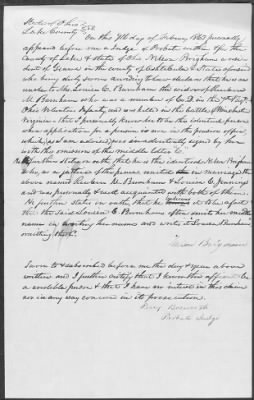 State of Ohio
Lake County } SS.
On this 7th day of 1863 personally
appeared before me a Judge of Probate within & for the
County of Lake & State of Ohio Nelson Brigham a resi-
dent of in the county of Ashtabula & State aforesaid
who being duly sworn according to law declares that he is an
uncle to Mrs. Louisa C. Burnham the widow of Reuben
M Burnham who was a member of Co. D. in the 7th Regt.
Ohio Volunteer Infantry and was killed at the battle of
Virginia - that I personally know her to be the identical person
whose application for a pension is now in the pension office,
which, as I am advised, was inadvertently signed by her
with the omission of the middle letter C.
He further states on oath that he is the identical Nelson Brigham
who, as a justice of the peace united in marriage the
above named Reuben M. Burnham & Louisa C. Jennings
and was previously & well acquainted with both of them.
He further states on oath that he believes it to be a fact
that the said Louisa C. Burnham often omits her middle
name in writing her name and writes it Louisa Burnham
omitting the C.
Nelson Brigham
Sworn to & subscribed before me the day & year above
written and I further certify that I know this affiant to be
a credible person & that I have no interest in this claim
nor in any way concerned in its prosecution.
Perry Bosworth
Probate Judge